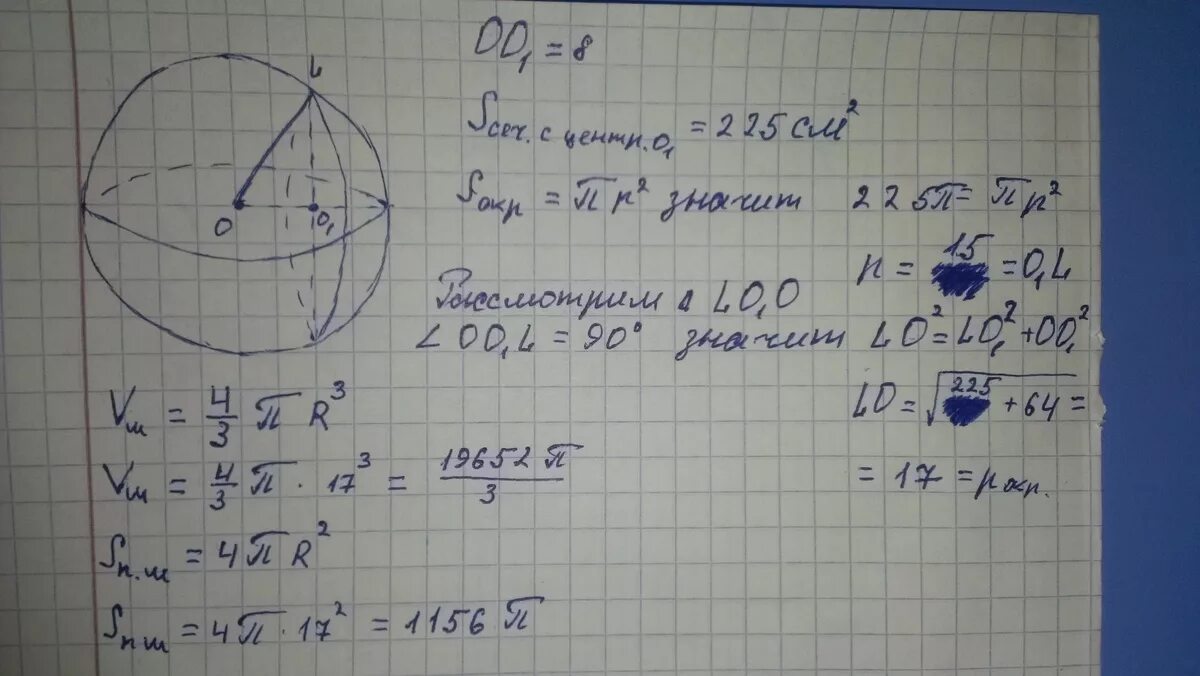 L
O
O₁
OO₁ = 8
Sсеч. с центр. O₁ = 225 см²
Sокр = πr² значит 225π = πr²
r = 15 = O₁L
Рассмотрим Δ LO₁O
∠OO₁L = 90° значит LO² = LO₁² + OO₁²
LO = √225 + 64 =
= 17 = rокр.
Vш = 4/3 π R³
Vш = 4/3 π · 17³ = 19652π/3
Sп.ш = 4πR²
Sпш = 4π · 17² = 1156π